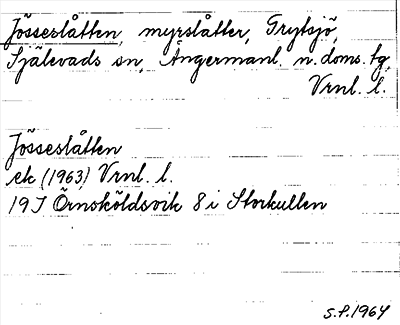 Jösseslåtten, myrslåtter, Grytsjö,
Själevads sn, Ångermanl. n. doms. tg,
Vrnl. l.
Jösseslåtten
ek (1963) Vrnl. l.
19J Örnsköldsvik 8 i Storkullen
S.P. 1964